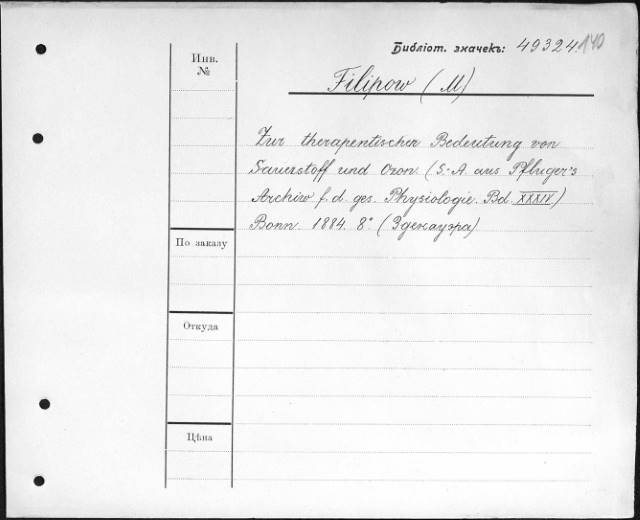 Библіот. значекъ: 49324.140
Инв.
№
Filipow (M)
Zur therapentischen Bedeutung von
Sauerstoff und Ozon. (S.-A. aus Pfluger's
Archiw f. d. ges. Physiologie. Bd. XXXIV.)
Bonn. 1884. 8° (Здекауэра).
По заказу
Откуда
Цѣна